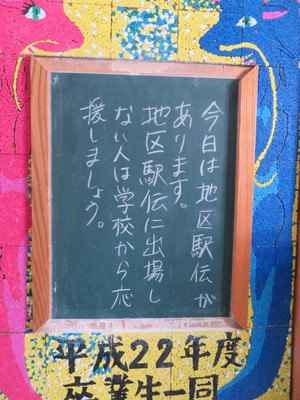 今日は地区駅伝が
あります。
地区駅伝に出場し
ない人は学校から応
援しましょう。
平成22年度
卒業生一同